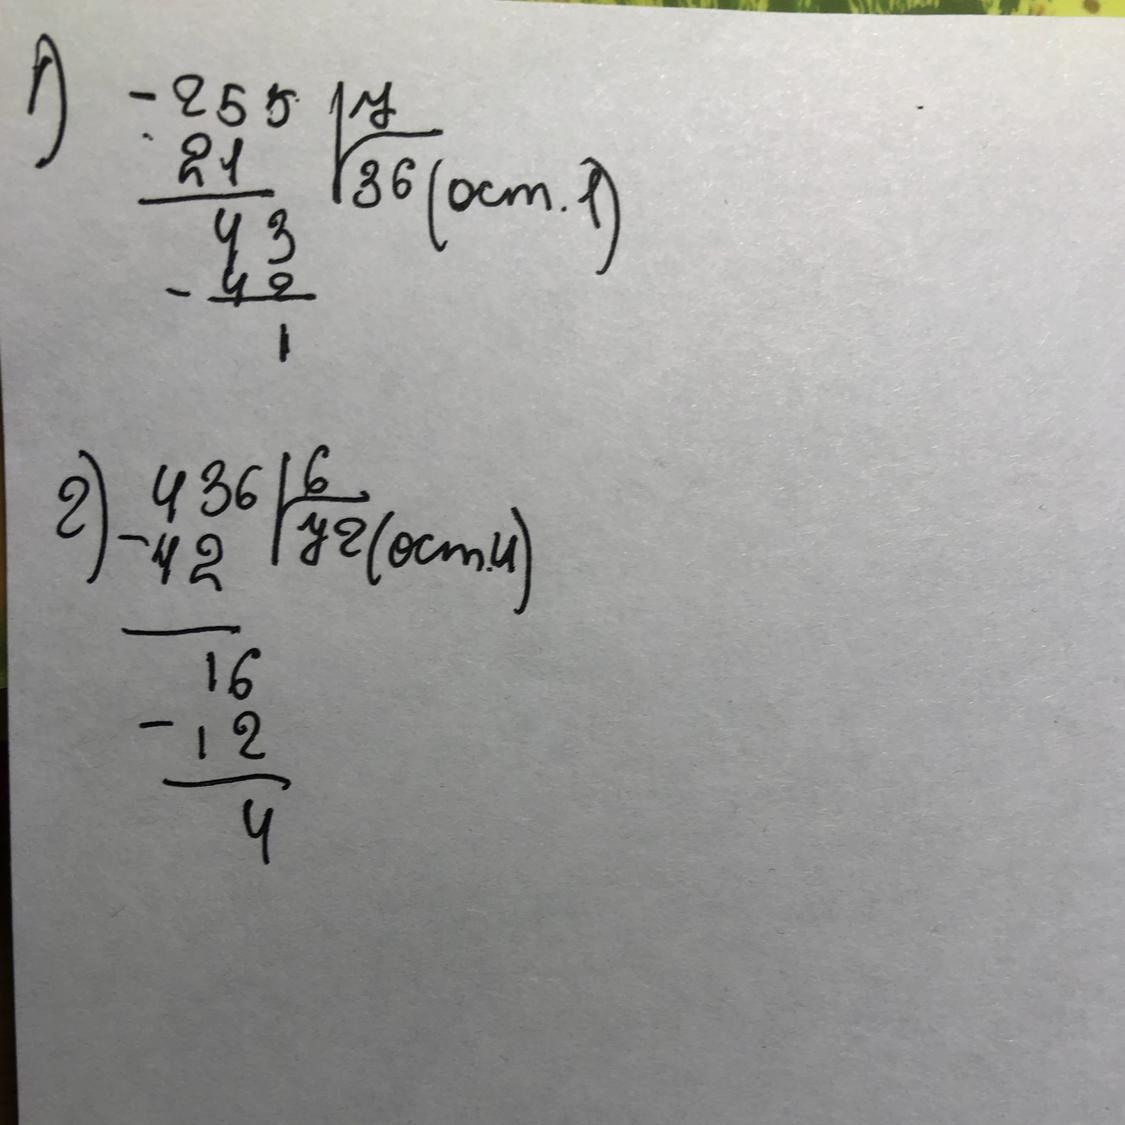 1) - 255 | 7
21 | 36 (ост. 1)
43
- 42
1
2) 436 | 6
- 42 | 72 (ост. 4)
16
- 12
4